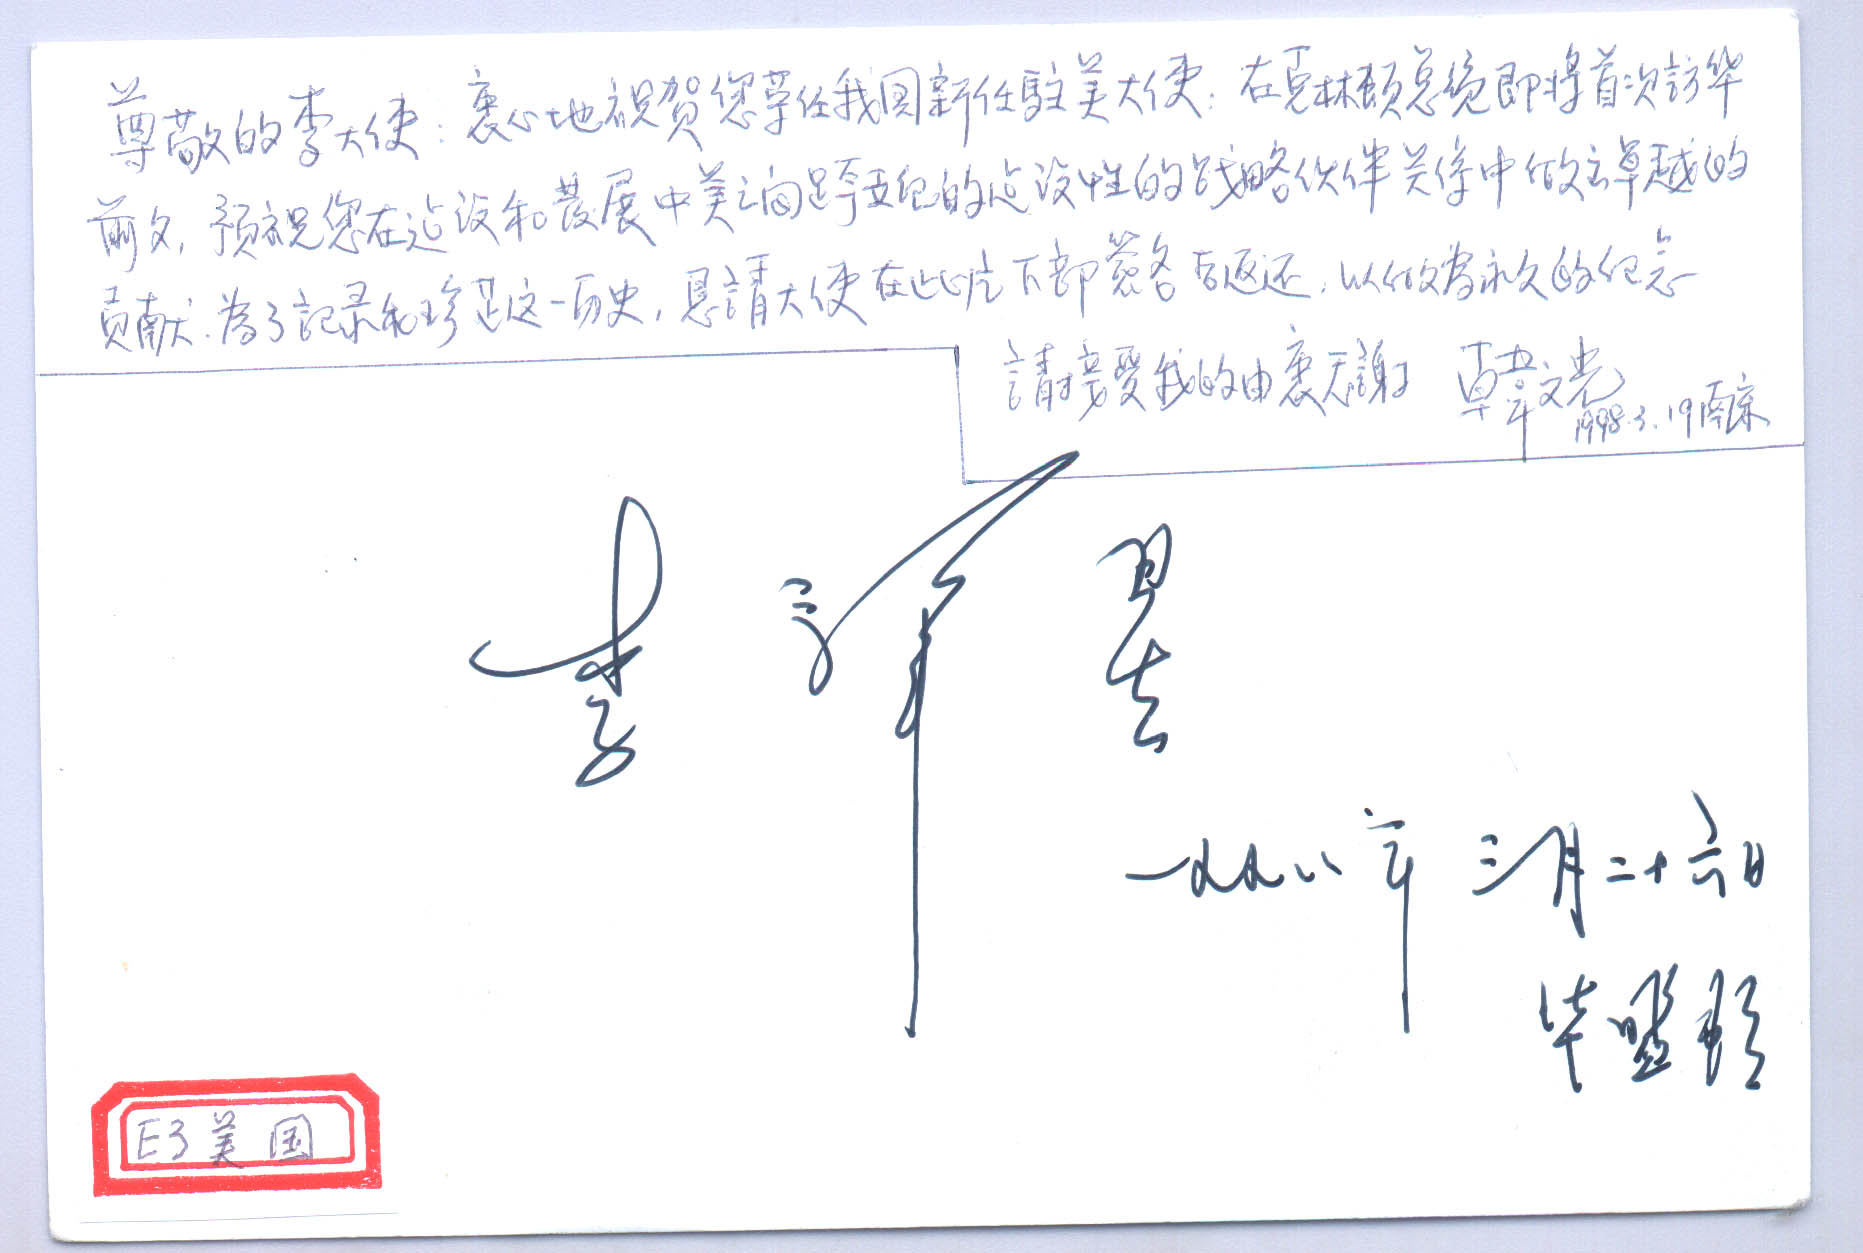 尊敬的李大使：衷心地祝贺您荣任我国新任駐美大使：在克林顿总统即将首次訪华
前夕，预祝您在建设和發展中美之间跨世纪的建设性的战略伙伴关係中做出卓越的
贡献。為了記录和珍惜这一历史，恳請大使在此片下部簽名后返还，以做為永久的纪念
請接受我的由衷天謝 韓文光
1998.3.19南京
李 肇 星
一九九八年 三月二十六日
华盛顿
E3美国